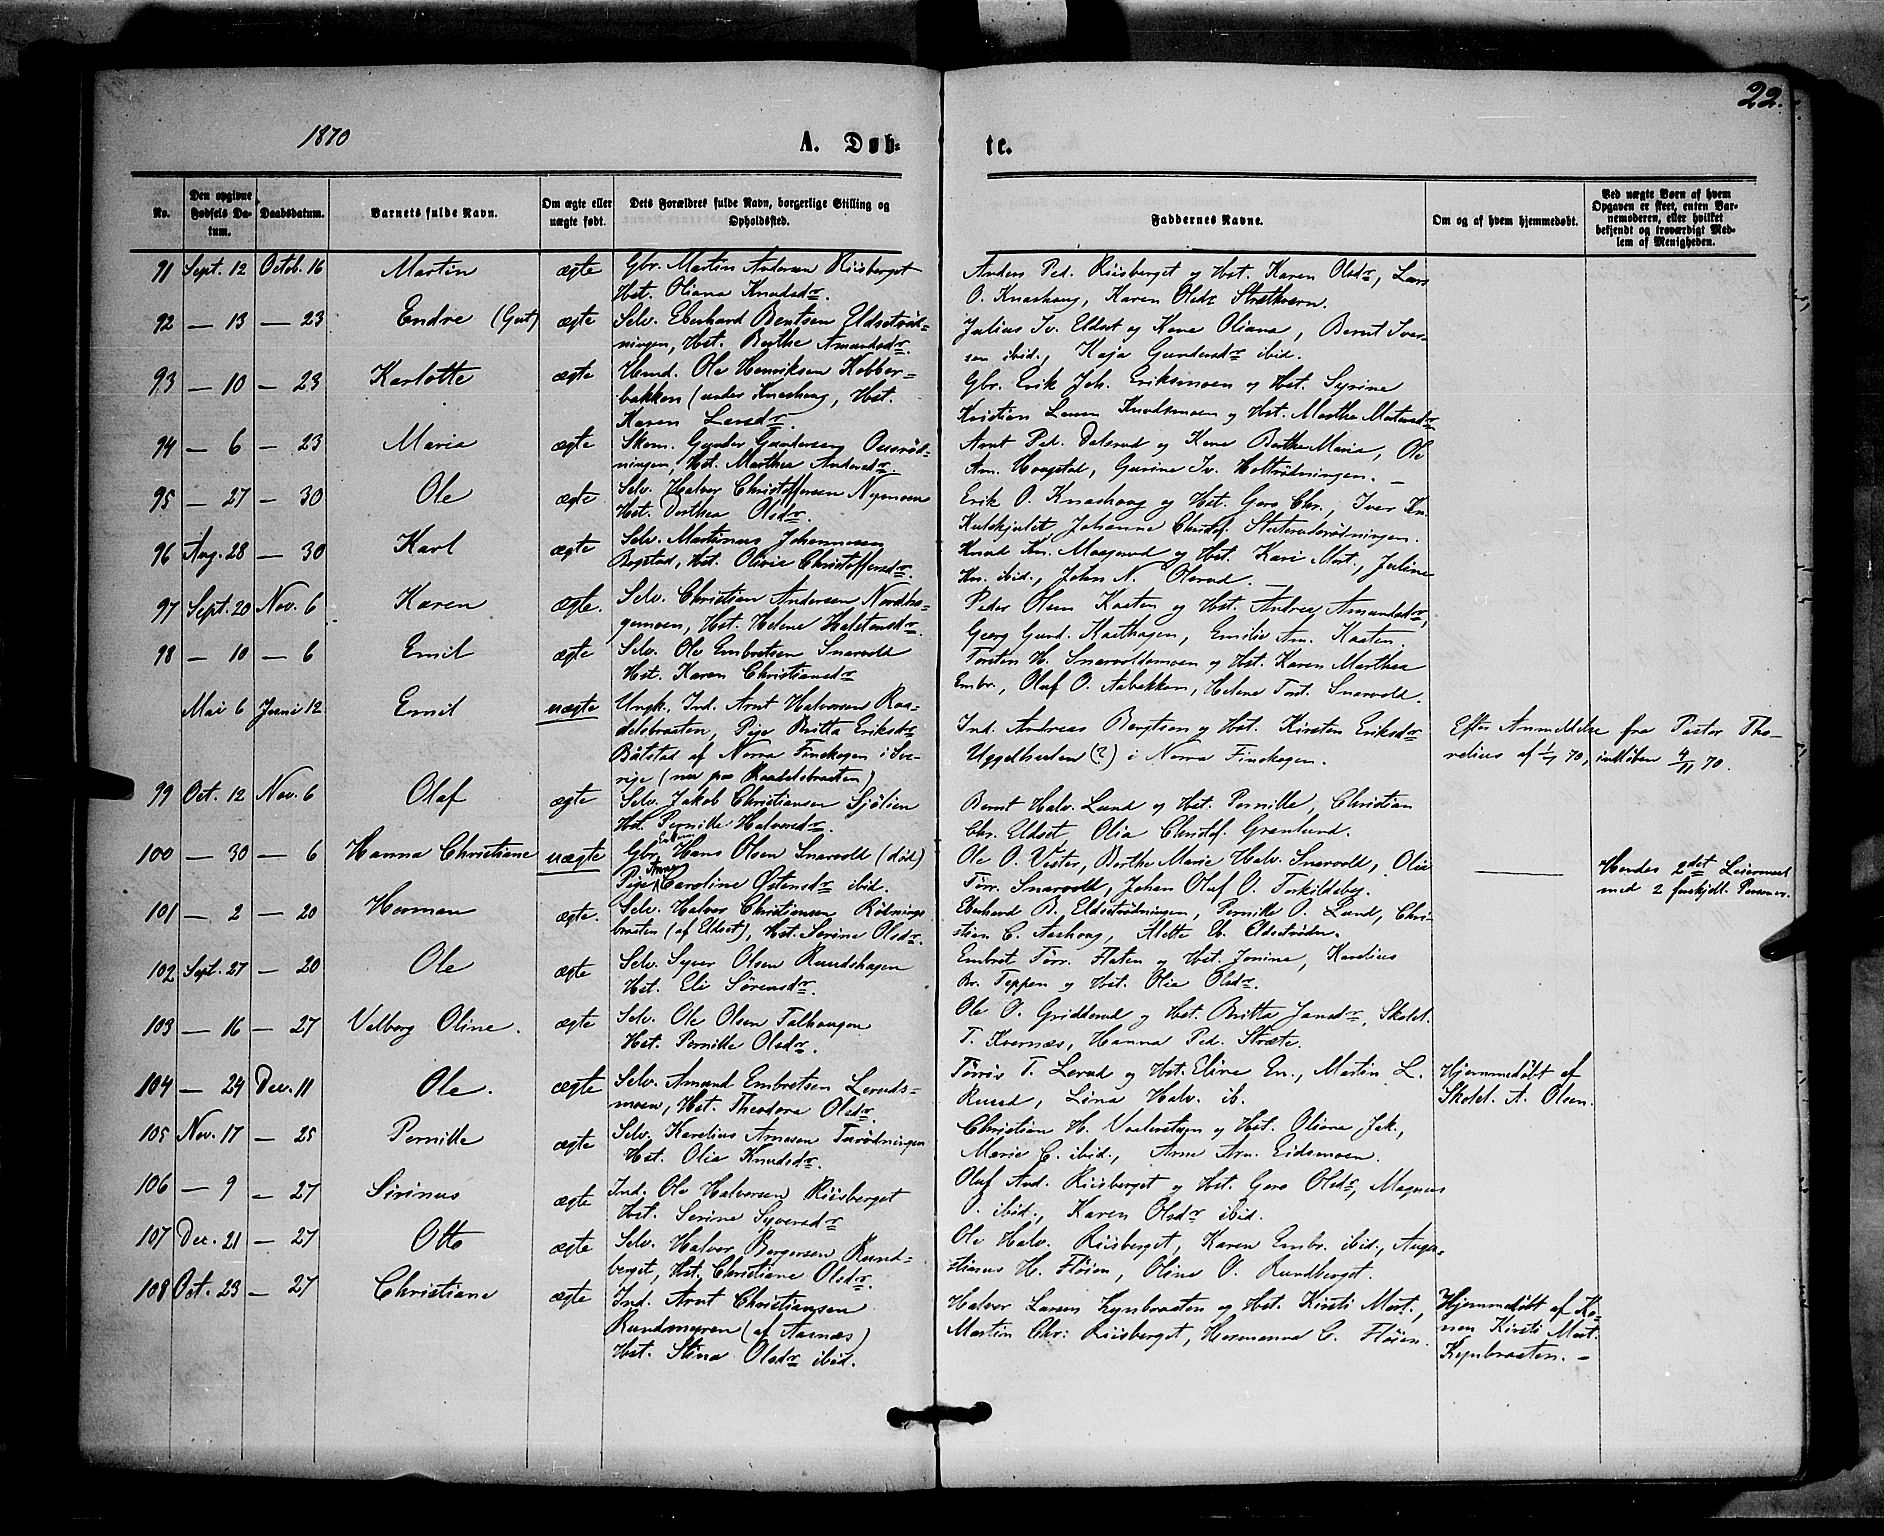 22.
1870
A. Døb-
te.
No.
Den opgivne Fødsels Da-
tum.
Daabsdatum.
Barnets fulde Navn.
Om ægte eller
uægte født.
Dets Forældres fulde Navn, borgerlige Stilling og
Opholdssted.
Faddernes Navne.
Om og af hvem hjemmedøbt.
Ved uægte Børn af hvem
Opgaven er skeet, enten Bar-
nemoderen, eller hvilket
bekjendt og troværdigt Med-
lem af Menigheden.
91 Sept. 12 Octob. 16 Martin ægte Gbr. Martin Andersen Riisberget
Hst. Oliana Knudsdr.
Anders Ped. Riisberget og Hst. Karen Olsdr, Lars
O. Knashaug, Karen Olsdr Strætkværn.
92 — 13 — 23 Endre (Gut) ægte Selv. Eberhard Bentsen Eldsetrød-
ningen, Hst. Berthe Amundsdr.
Julius Iv. Eldset og Kone Oliana, Bernt Iver-
sen ibid., Kaja Gundersdr ibid.
93 — 10 — 23 Karlotte ægte Huusmd. Ole Henriksen Kobber-
bakken (under Knashaug, Hst.
Karen Larsdr.
Gbr. Erik Joh. Eriksmoen og Hst. Syrine
Kristian Larsen Knudsmoen og Hst. Marthe Mortensdr
94 — 6 — 23 Maria ægte Skom. Gunder Gundersen Overrød-
ningen, Hst. Marthea Andersdr.
Arnt Ped. Dalsrud og Kone Berthe Maria, Ole
Am. Haagstad, Gurine Iv. Holtrødningen. —
95 — 27 — 30 Ole ægte Selv. Halvor Christoffersen Nymoen
Hst. Dorthea Olsdr.
Erik O. Knashaug og Hst. Goro Chr., Iver Kn.
Kulskjulet Johanne Christof. Stuterudsrødningen.
96 Aug. 28 — 30 Karl ægte Selv. Martinus Johannesen
Bogstad, Hst. Olivia Christoffersdr.
Knud Kn. Maagerud og Hst. Kari Mort., Juline
Kn. ibid., John N. Olerud.
97 Sept. 20 Nov. 6 Karen ægte. Selv. Christian Andersen Nordha-
gemoen, Hst. Helene Halstensdr.
Peder Olsen Kaaten og Hst. Andrea Amundsdr,
Georg Gund. Kaethagen, Emilie Am. Kaaten
98 — 10 — 6 Emil ægte Selv. Ole Embretsen Snarvold
Hst. Karen Christiansdr
Torsten H. Snarvoldsmoen og Hst. Karen Marthea
Embr., Oluf O. Aabakken, Helene Torst. Snarvold.
Mai 6 Juni 12 Emil uægte Ungk. Ind. Arnt Halvorsen Raa-
delsbraaten, Pige Britta Eriksdr
Båtstad af Norra Finskogen i Sve-
rige (nu paa Raadelsbraaten)
Ind. Andreas Bengtsen og Hst. Kirsten Eriksdr
Uggelheden (?) i Norra Finskogen.
Efter Anmeldelse fra Pastor Tho-
relius af 1/7 70, indkommen 4/11 70.
99 Oct. 12 Nov. 6 Olaf ægte Selv. Jakob Christiansen Sjølien
Hst. Pernille Halvorsdr.
Bernt Halv. Lund og Hst. Pernille, Christian
Chr. Eldset Olia Christof. Grønlund.
100 — 30 — 6 Hanna Christiane uægte Gbr. Enkem. Hans Olsen Snarvold (død)
Pige Anne Caroline Østensdr ibid.
Ole O. Vester, Berthe Marie Halv. Snarvold, Olia
Törr. Snarvold, Johan Oluf O. Torkildsby.
———
Hendes 2det Leiermaal
med 2 forskjell. Personer.
101 — 2 — 20 Herman ægte. Selv. Halvor Christiansen Rödnings-
braaten (af Eldset), Hst. Serine Olsdr.
Eberhard B. Eldsetrødningen, Pernille O. Lund, Chri-
stian C. Aashaug, Alette Eb. Eldsetrøden.
102 Sept. 27 — 20 Ole ægte Selv. Syver Olsen Rundshagen
Hst. Eli Sørensdr.
Embret Törr. Flaten og Hst. Jonine, Karelius
Br. Teppen og Hst. Olia Olsdr.
103 — 16 — 27 Valborg Oline. ægte Selv. Ole Olsen Talhaugen
Hst. Pernille Olsdr.
Ole O. Gridderud og Hst. Britta Jansdr, Skolel.
T. Kvernæs, Hanna Ped. Stræte.
104 — 24 Dec. 11 Ole. ægte Selv. Amund Embretsen Leruds-
moen, Hst. Theodora Olsdr.
Törris T. Lerud og Hst. Eline En., Martin L.
Ruud, Lina Halv. ib.
Hjemmedøbt af
Skolel. A. Olsen.
105 Nov. 17 — 25 Pernille ægte Selv. Karelius Arnesen Turødningen
Hst. Olia Knudsdr.
Christian H. Vaalerstuen og Hst. Oliana Jak.,
Marie C. ibid., Arne Arn. Eidsmoen.
106 — 9 — 27 Sirinus ægte Ind. Ole Halvorsen Riisberget
Hst. Serine Syversdr
Oluf And. Riisberget og Hst. Goro Olsdr, Magnus
O. ibid., Karen Olsdr ibid.
107 Dec. 21 — 27 Otto ægte Selv. Halvor Børgersen Rund-
berget, Hst. Christiane Olsdr.
Ole Halv. Riisberget, Karen Embr. ibid., Augu-
stinus H. Fløien, Oline O. Rundberget.
108 Oct. 23 — 27 Christiane ægte Ind. Arnt Christiansen
Rundmyren (af Aasnæs)
Hst. Stina Olsdr ibid.
Halvor Larsen Kynbraaten og Hst. Kirsti Mort.,
Martin Chr: Riisberget, Hermanna C. Fløien.
Hjemmedøbt af Ko-
nen Kirsti Mort.
Kynbraaten. –